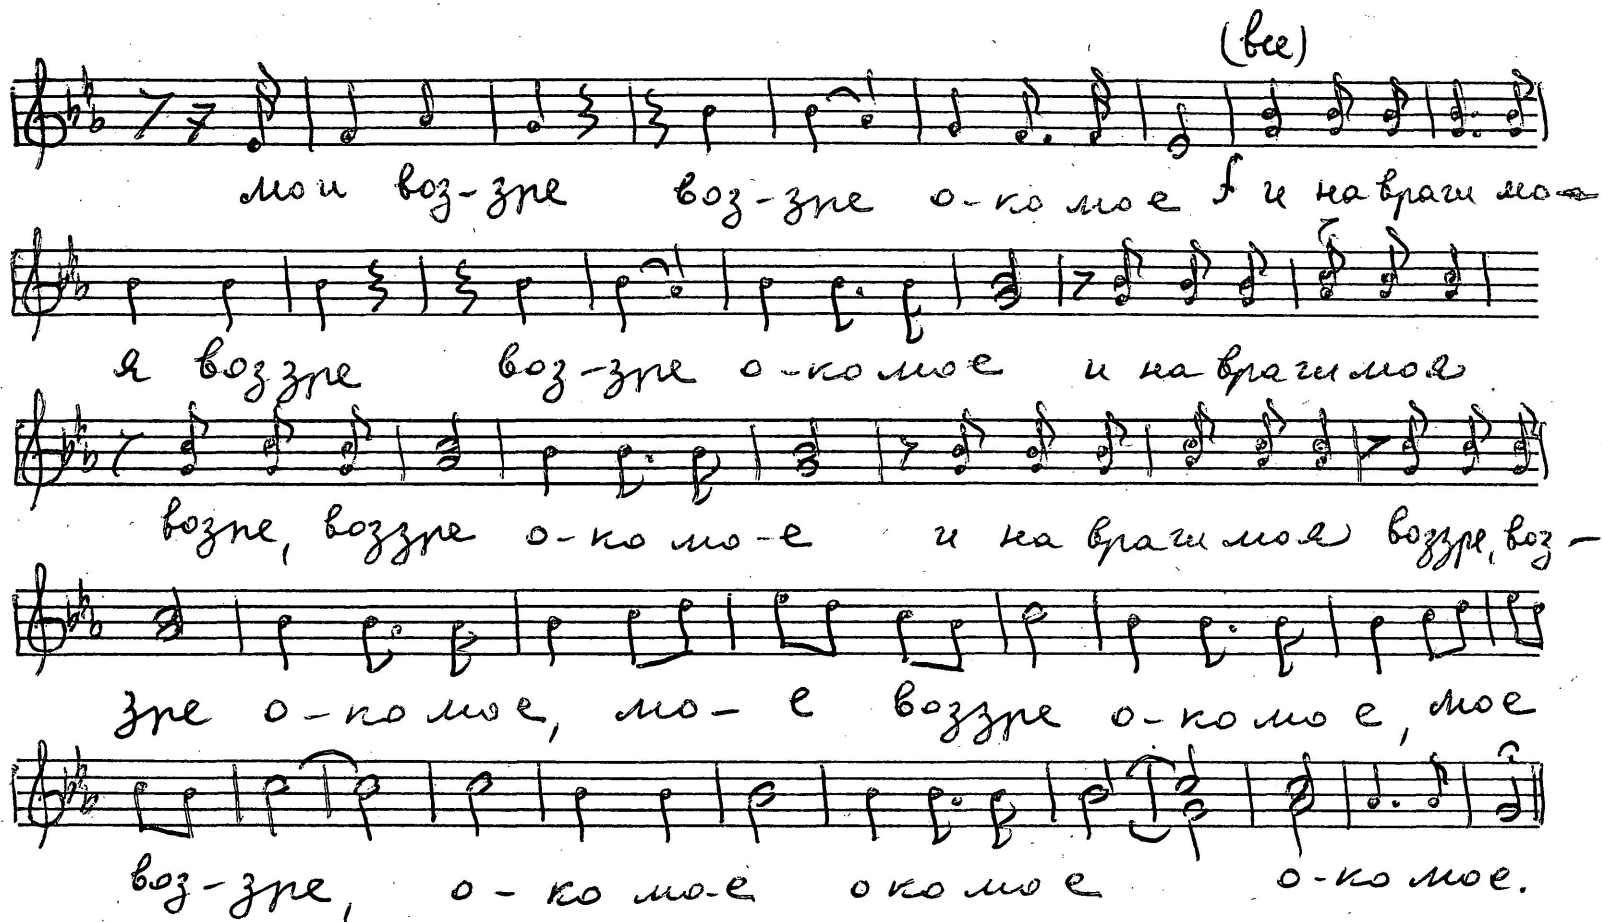 (все)
мои воз-зре воз-зре о-ко мое f и на враги мо-
я воззре воз-зре о-ко мое и на враги моя
возре, воззре о-ко мо-е и на враги моя воззре, воз-
зре о-ко мое, мо-е воззре о-ко мое, мое
воз-зре, о-ко мо-е око мое о-ко мое.